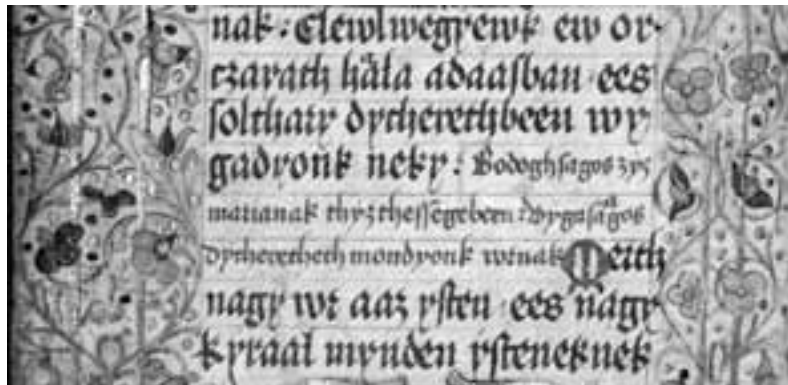 nak : Elewlwegyewk ew or-
czarath häla adaasban ees
solthary dycherethbeen wy
gadyonk neky : Bodoghsagos zyz
marianak thyzthessegebeen : Wygasagos
dycherethech mondyonk wrnak Merth
nagy wr aaz ysten ees nagy
kyraal mynden ysteneknek